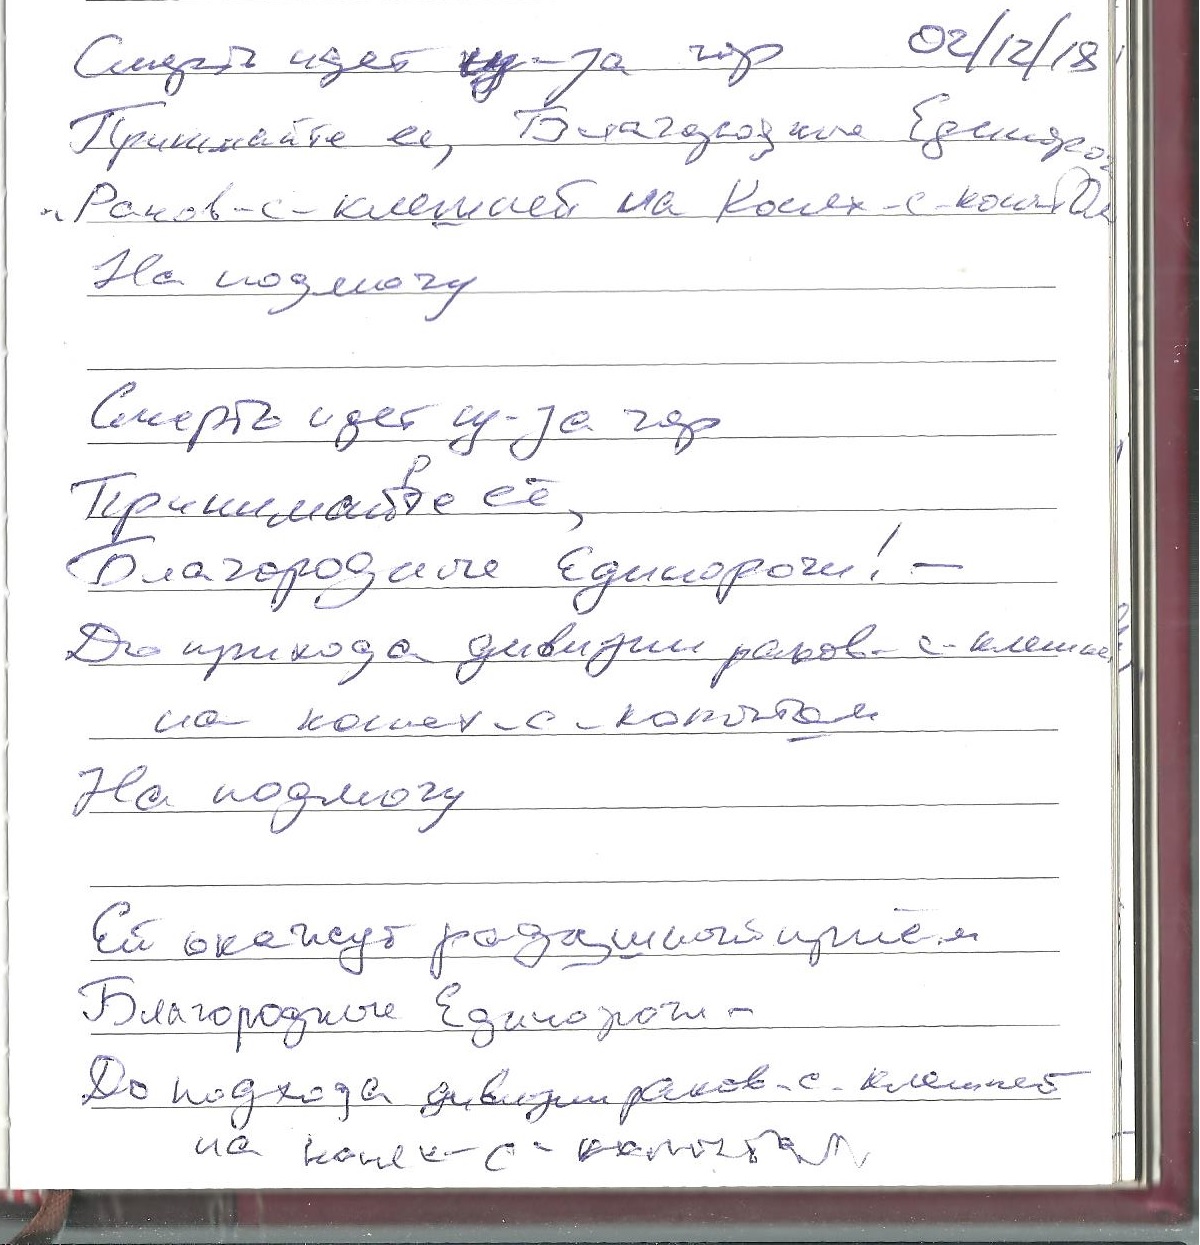 Смерть идет из-за гор 02/12/18
Принимайте ее, Благородные Единороги
Раков-с-клешней на Конях-с-копытом
На подмогу
Смерть идет из-за гор
Принимайте её,
Благородные Единороги! —
До прихода дивизии раков-с-клешней
на конях-с-копытом
На подмогу
Ей окажут радушный приём
Благородные Единороги -
До подхода дивизии раков-с-клешней
на конях-с-копытом